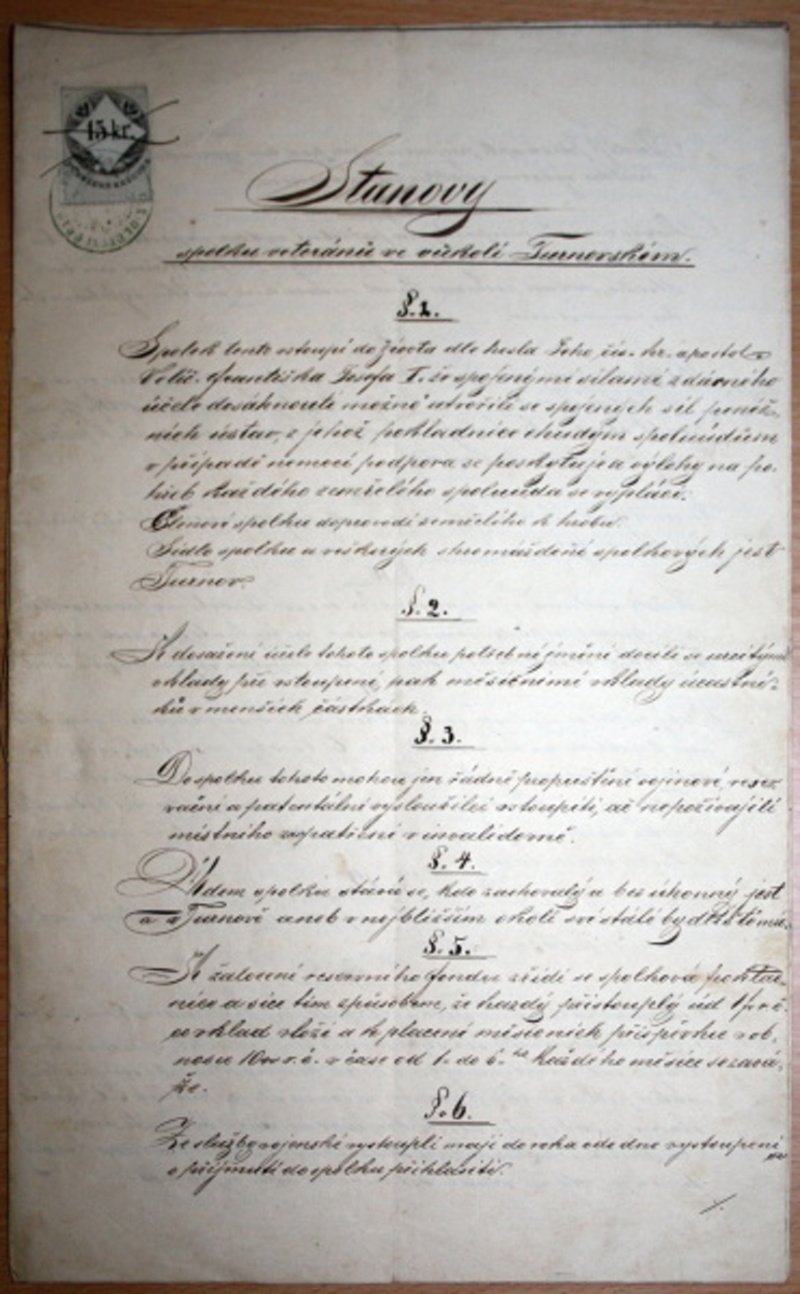 15 kr.
Stanovy
spolku veteránů ve vůkolí Turnovském.
§. 1.
Spolek tento vstoupí do života dle hesla Jeho cís. kr. apostol.
Velič. Františka Josefa I. že spojenými silami zdárného
účele dosáhnouti možno utvořili se spojených sil peněž-
ních ústav, z jehož pokladnice chudým spoluúdům
v případě nemoci podpora se poskytuje a výlohy na po-
hřeb každého zemřelého spoluúda se vyplácí.
Členové spolku doprovodí zemřelého k hrobu.
Sídlo spolku a veškerých shromáždění spolkových jest
Turnov.
§. 2.
K dosažení účele tohoto spolku potřebné jmění docílí se určitými
vklady při vstoupení, pak měsíčními vklady účastní-
ků v menších částkách.
§. 3.
Do spolku tohoto mohou jen řádně propuštění vojínové, reser-
vační a patentální vysloužilci vstoupiti, ač nepožívají-li
místního zaopatření v invalidovně.
§. 4.
Údem spolku stává se, kdo zachovalý a bezúhonný jest
a v Turnově aneb v nejbližším okolí své stálé bydliště má.
§. 5.
K založení reservního fondu zřídí se spolková poklad-
nice a sice tím způsobem, že každý přistouplý úd 1 zl r. č.
co vklad vloží a k placení měsíčních příspěvků v ob-
nosu 10 kr r. č. v čase od 1. do 6. každého měsíce se zavá-
že.
§. 6.
Ze služby vojenské vystouplí mají do roka ode dne vystoupení
o přijmutí do spolku přihlásiti.